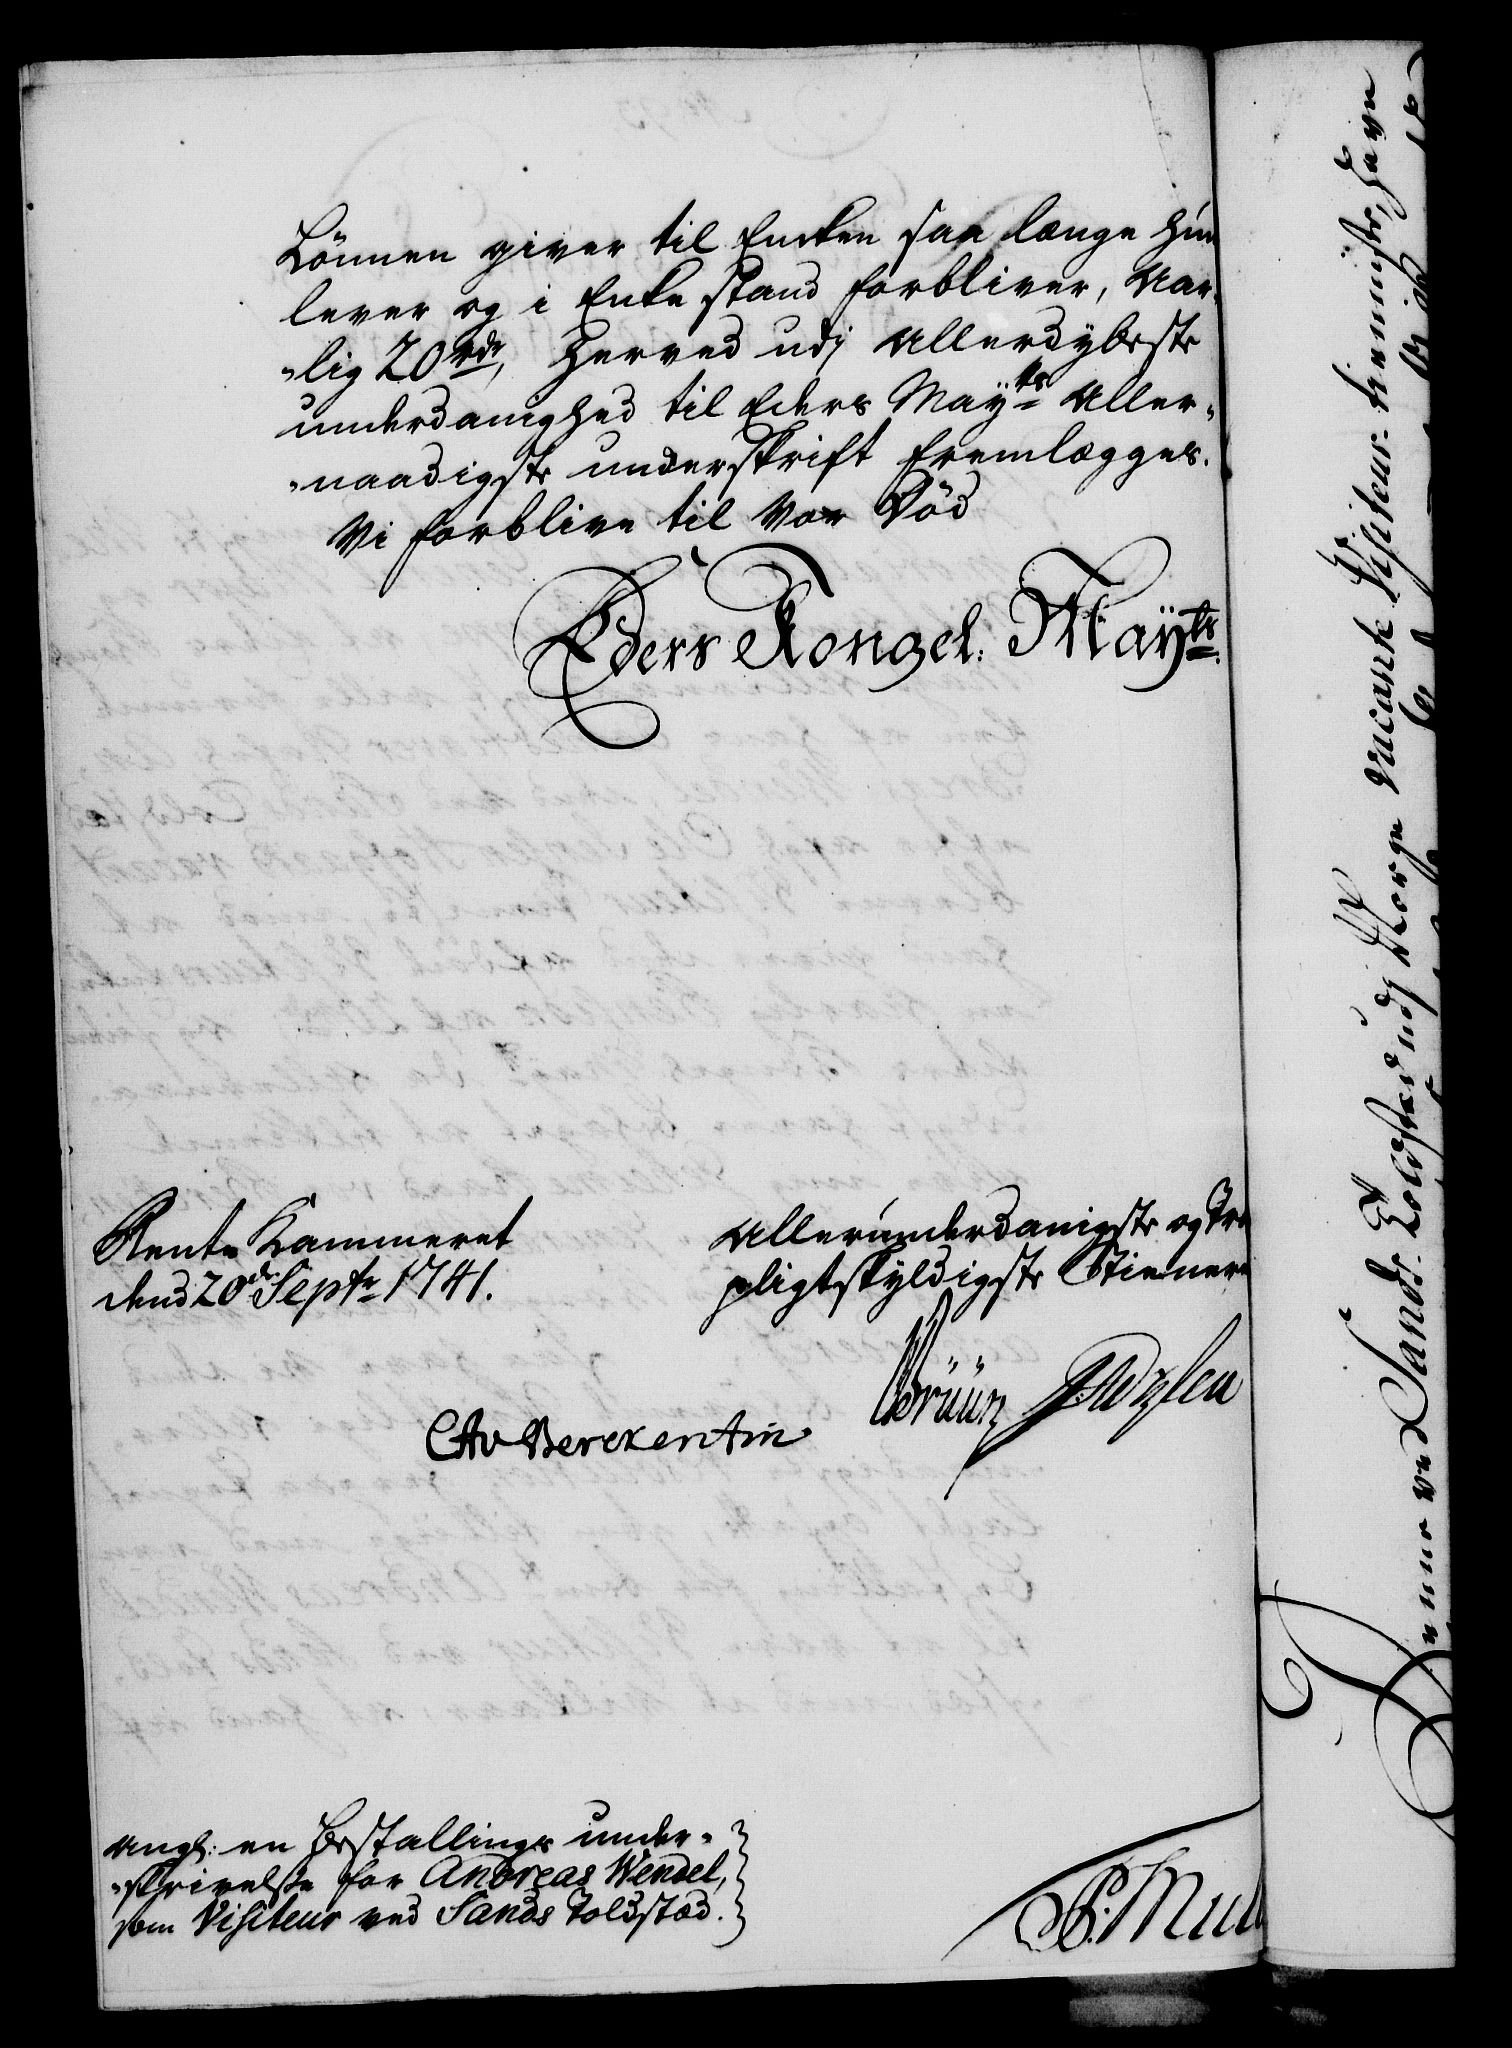 Lönnen giver til Encken saa længe hun
lever og i Enke stand forbliver, Aar-
"lig 20 rdr, herved udj Allerdybeste
underdanighed til Eders Mayts Aller-
"naadigste underskrift fremlægges.
Vi forblive til Vor Död
Eders Kongel: Mayts.
Rente Kammeret
dend 20de Septr 1741.
Allerunderdanigste og Tro
pligtskyldigste Tienere
CAv Berckentin
Brüün
angl: en Bestallings under-
"skrivelse for Andreas Wendel,
som Visiteur ved Sands Toldsted.
ved Sands Toldsted udj Norge vacante Visiteur-tienniste, havn